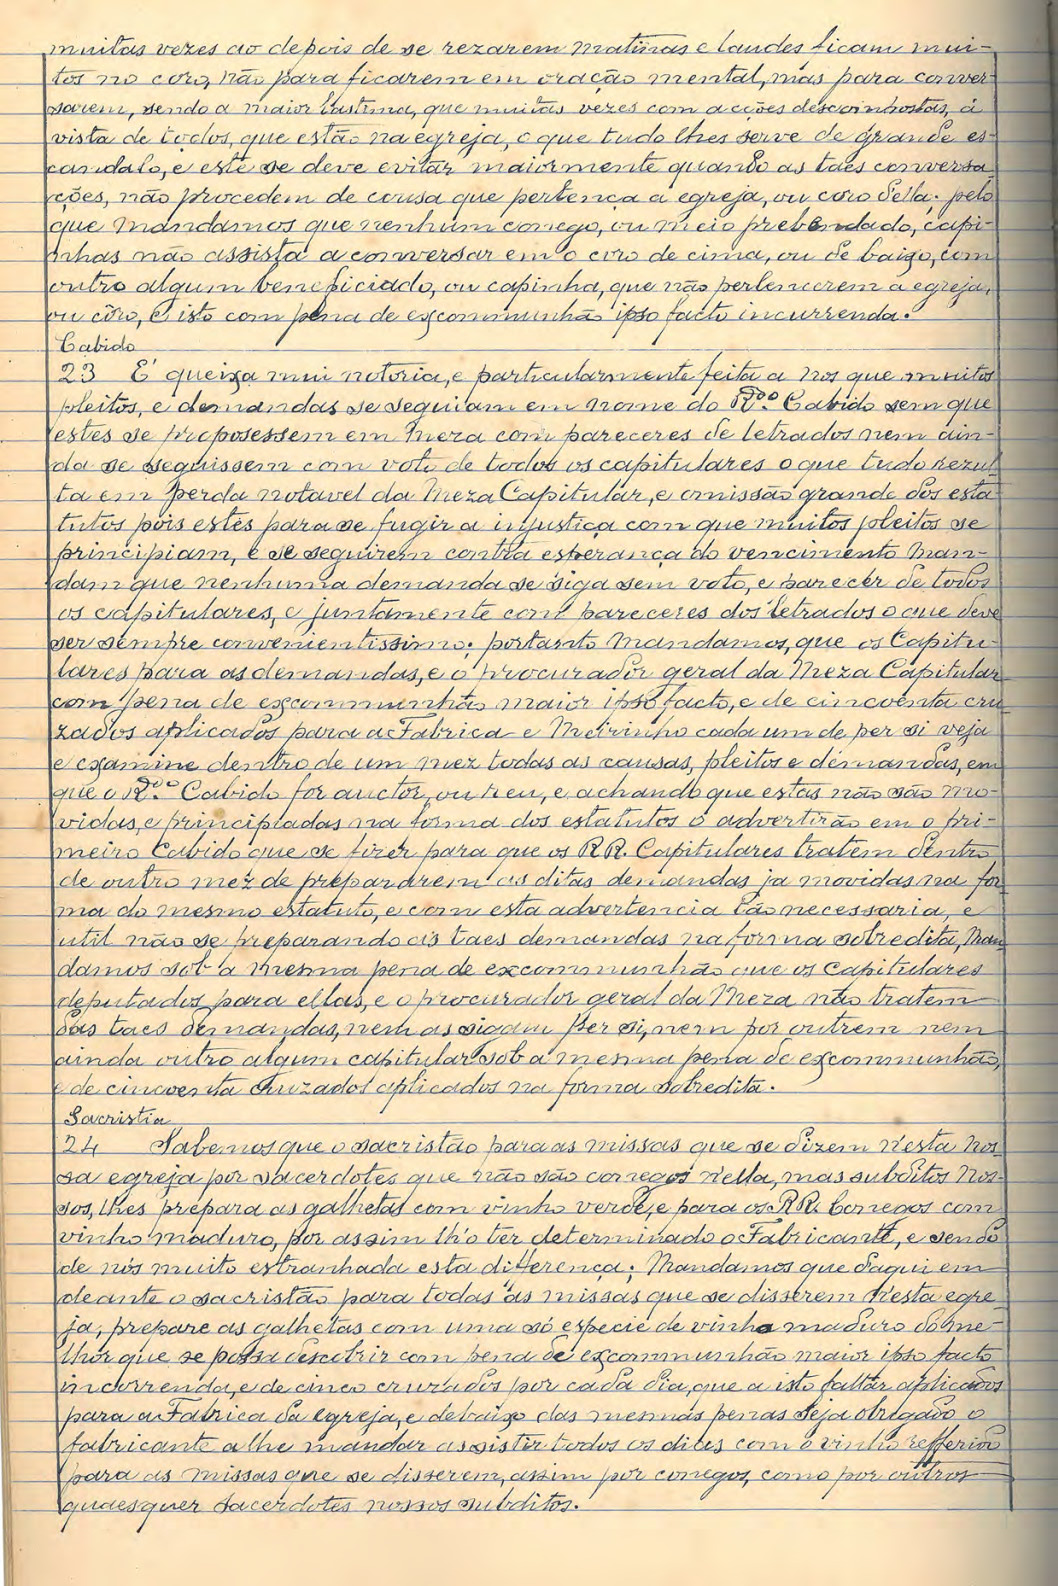 muitas vezes ao depois de se rezarem matinas e laudes ficam mui-
tos no coro, não para ficarem em oração mental, mas para conver-
sarem, sendo a maior lastima, que muitas vezes com acções descompostas, á
vista de todos, que estão na egreja, o que tudo lhes serve de grande es-
candalo, e este se deve evitar maiormente quando as taes conversa-
ções, não procedem de cousa que pertença a egreja, ou côro della; pelo
que mandamos que nenhum conego, ou meio prebendado, capi-
nhas não assista a conversar em o coro de cima, ou de baixo, com
outro algum beneficiado, ou capinha, que não pertencerem a egreja,
ou côro, e isto com pena de excommunhão ipso facto incurrenda.
Cabido
23 E' queixa mui notoria, e particularmente feita a nos que muitos
pleitos, e demandas se seguiam em nome do R.do Cabido sem que
estes se proposessem em Meza com pareceres de letrados nem ain-
da se seguissem com voto de todos os capitulares o que tudo rezul-
ta em perda notavel da Meza Capitular, e omissão grande dos esta-
tutos pois estes para se fugir a injustiça com que muitos pleitos se
principiam, e se seguirem contra esperança do vencimento man-
dam que nenhuma demanda se siga sem voto, e parecer de todos
os capitulares, e juntamente com pareceres dos letrados o que deve
ser sempre convenientissimo; portanto Mandamos, que os Capitu-
lares para as demandas, e o procurador geral da Meza Capitular
com pena de excommunhão maior ipso facto, e de cincoenta cru-
zados aplicados para a Fabrica e Meirinho cada um de per si veja
e examine dentro de um mez todas as causas, pleitos e demandas, em
que o R.do Cabido for auctor, ou reu, e achando que estas não são mo-
vidas, e principiadas na forma dos estatutos o advertirão em o pri-
meiro Cabido que se fizer para que os RR. Capitulares tratem dentro
de outro mez de prepararem as ditas demandas ja movidas na for-
ma do mesmo estatuto, e com esta advertencia tão necessaria, e
util não se preparando as taes demandas na forma sobredita, Man-
damos sob a mesma pena de excommunhão que os Capitulares
deputados para ellas, e o procurador geral da Meza não tratem
das taes demandas, nem as sigam per si, nem por outrem nem
ainda outro algum capitular sob a mesma pena de excommunhão,
e de cincoenta cruzados aplicados na forma sobredita.
Sacristia
24 Sabemos que o sacristão para as missas que se dizem n'esta nos-
sa egreja por sacerdotes que não são conegos n'ella, mas subditos nos-
sos, lhes prepara as galhetas com vinho verde, e para os RR. Conegos com
vinho maduro, por assim lh'o ter determinado o Fabricante, e sendo
de nós muito estranhada esta differença; Mandamos que d'aqui em
deante o sacristão para todas as missas que se disserem n'esta egre-
ja, prepare as galhetas com uma só especie de vinho maduro do me-
lhor que se possa descobrir com pena de excommunhão maior ipso facto
incorrenda, e de cinco cruzados por cada dia, que a isto faltar aplicados
para a Fabrica da egreja, e debaixo das mesmas penas seja obrigado o
fabricante a lhe mandar assistir todos os dias com o vinho refferido
para as missas que se disserem, assim por conegos, como por outros
quaesquer sacerdotes nossos subditos.